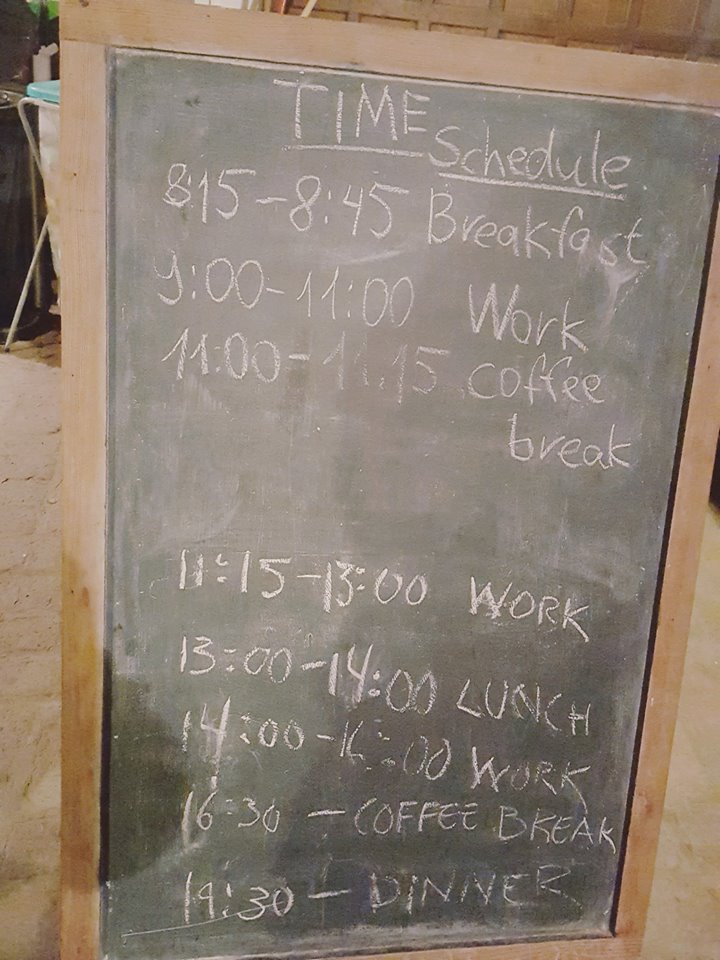 TIME Schedule
8:15-8:45 Breakfast
9:00-11:00 Work
11:00-11:15 coffee
break
11:15-13:00 WORK
13:00-14:00 LUNCH
14:00-16:00 WORK
16:30 - COFFEE BREAK
19:30 - DINNER